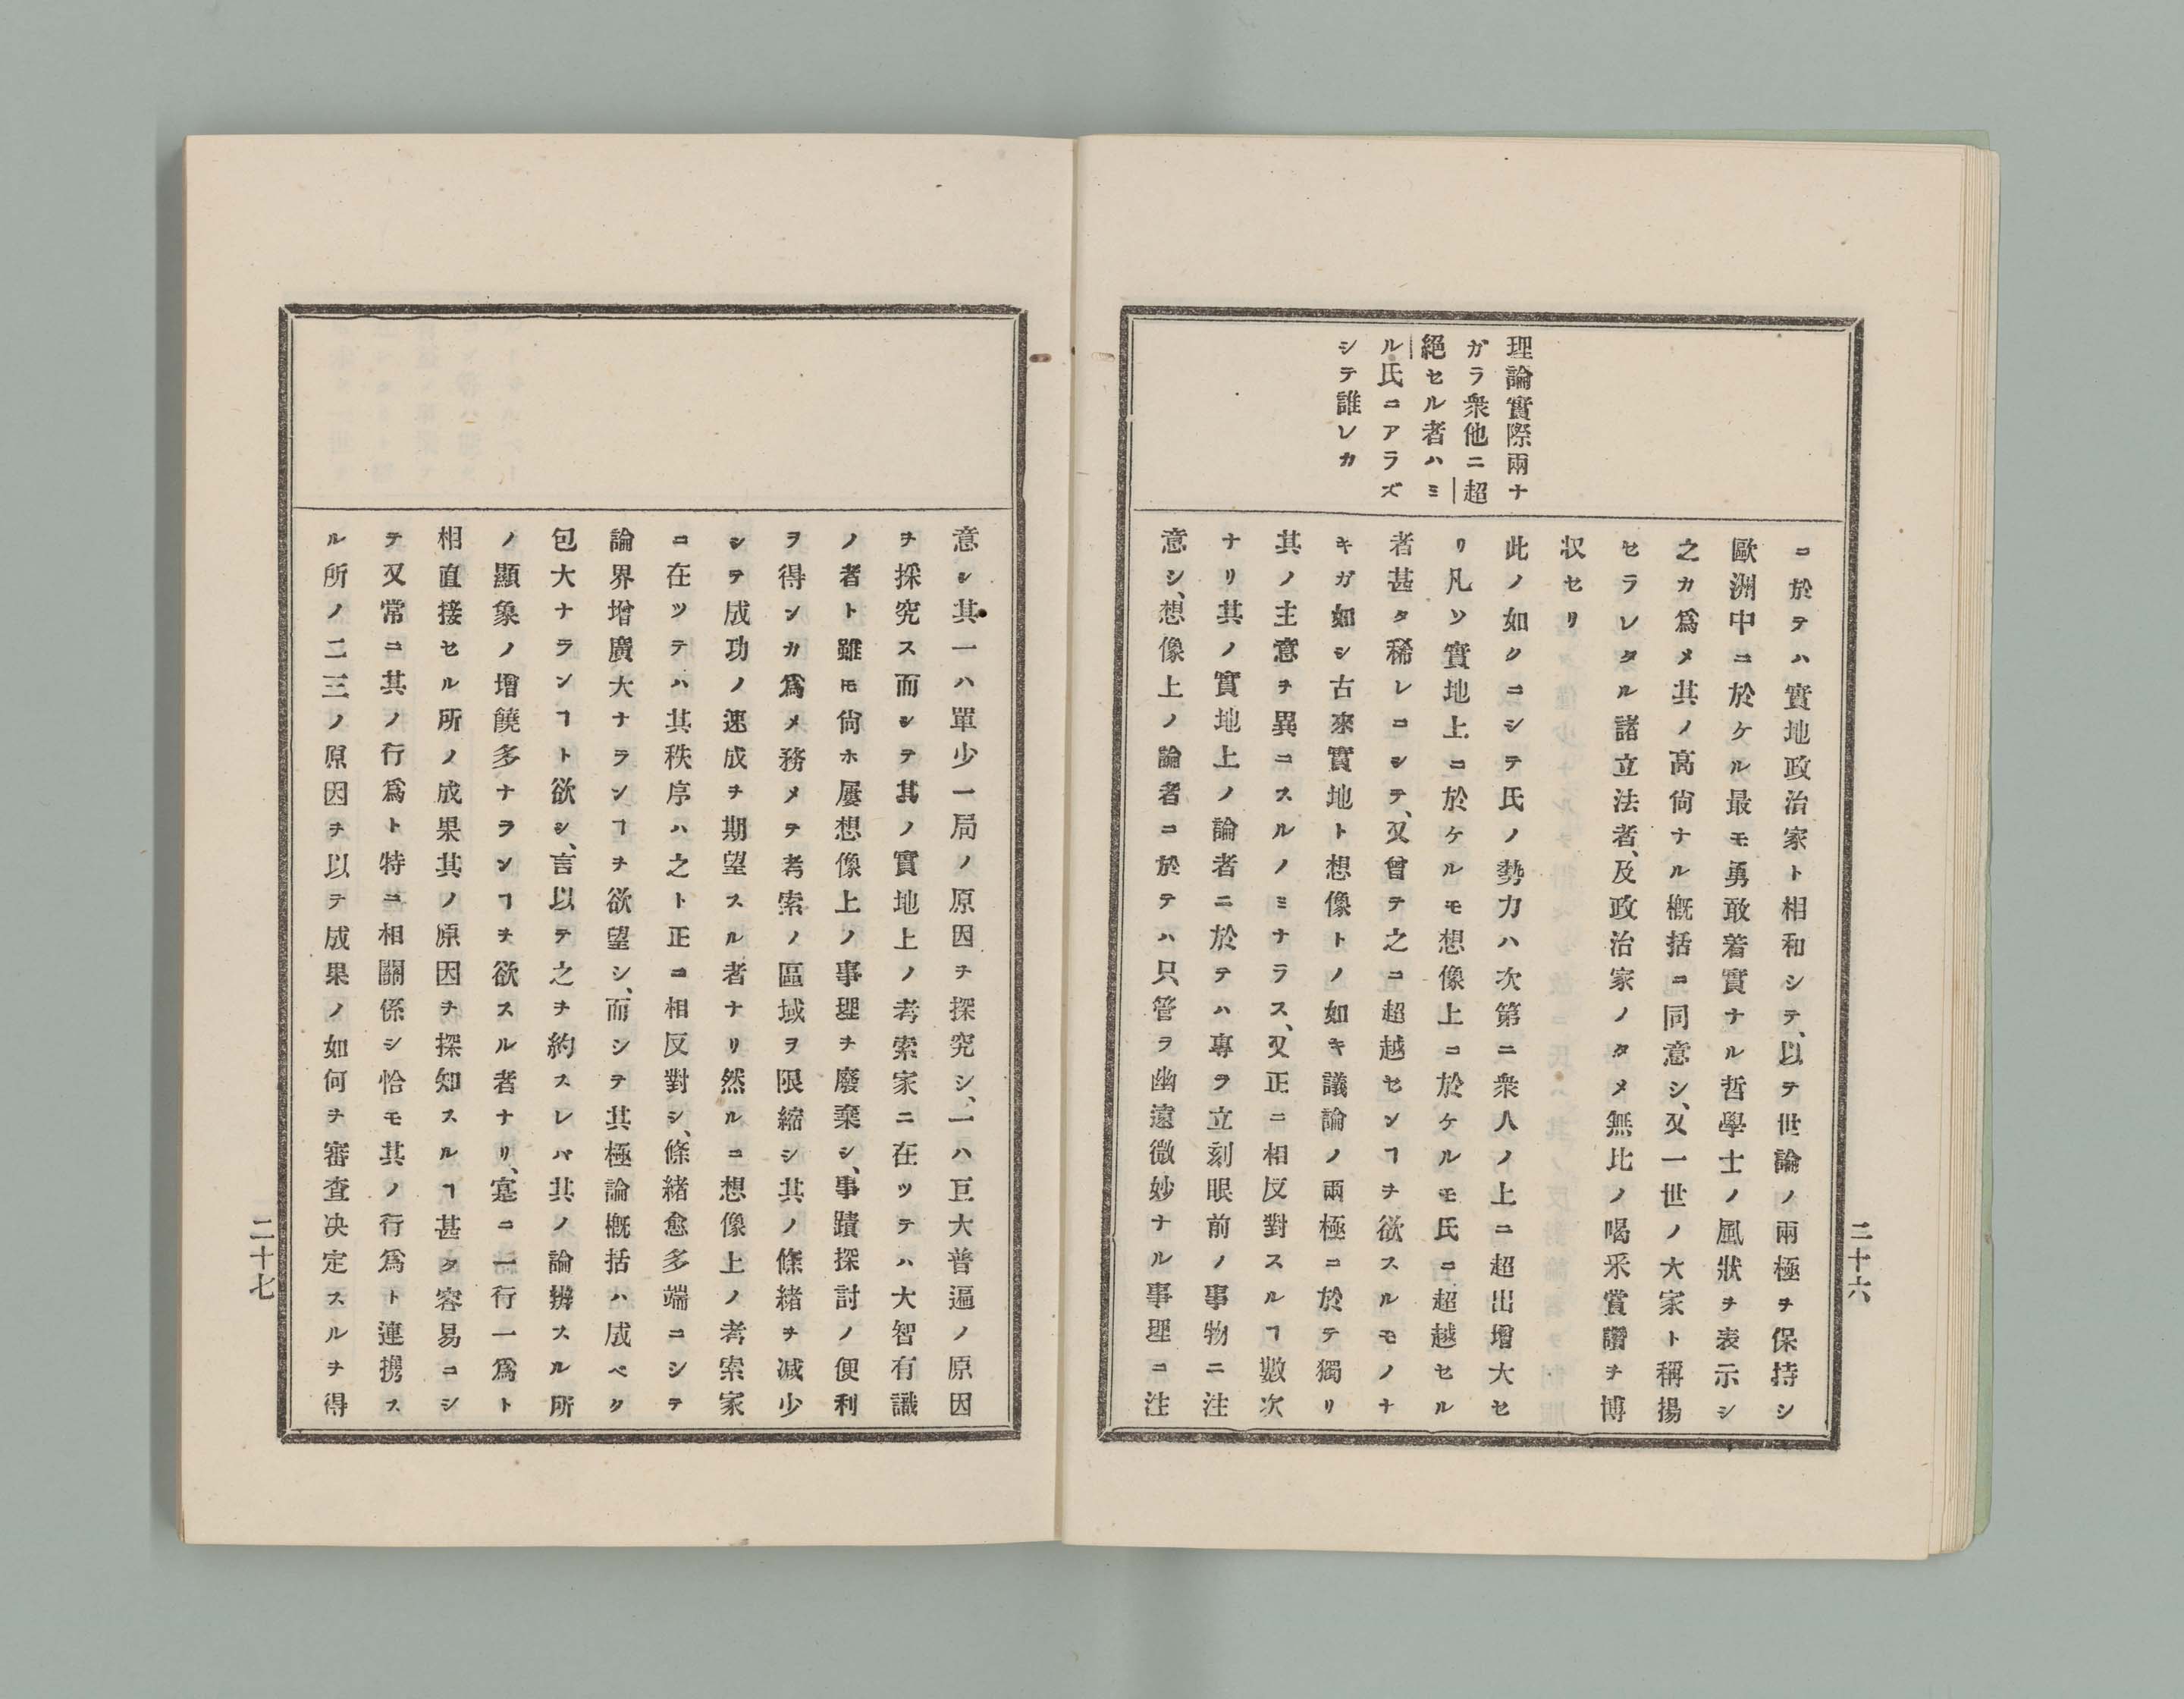 理論實際兩ナ
ガラ衆他ニ超
絕セル者ハミ
ル氏ニアラズ
シテ誰レカ
ニ於テハ實地政治家ト相和シテ、以テ世論ノ兩極ヲ保持シ
歐洲中ニ於ケル最モ勇敢着實ナル哲學士ノ風狀ヲ表示シ
之カ爲メ其ノ高尙ナル槪括ニ同意シ、又一世ノ大家ト稱揚
セラレタル諸立法者、及政治家ノタメ無比ノ喝采賞讚ヲ博
収セリ
此ノ如クニシテ氏ノ勢力ハ次第ニ衆人ノ上ニ超出增大セ
リ凡ソ實地上ニ於ケルモ想像上ニ於ケルモ氏ニ超越セル
者甚タ稀レニシテ、又曾テ之ニ超越センヿヲ欲スルモノナ
キガ如シ古來實地ト想像トノ如キ議論ノ兩極ニ於テ獨リ
其ノ主意ヲ異ニスルノミナラス、又正ニ相反對スルヿ數次
ナリ其ノ實地上ノ論者ニ於テハ專ラ立刻眼前ノ事物ニ注
意シ、想像上ノ論者ニ於テハ只管ラ幽遠微妙ナル事理ニ注
二十六
意シ其一ハ單少一局ノ原因ヲ探究シ、一ハ巨大普遍ノ原因
ヲ採究ス而シテ其ノ實地上ノ考索家ニ在ツテハ大智有識
ノ者ト雖モ尙ホ屢想像上ノ事理ヲ廢棄シ、事蹟探討ノ便利
ヲ得ンカ爲メ務メテ考索ノ區域ヲ限縮シ其ノ條緖ヲ减少
シテ成功ノ速成ヲ期望スル者ナリ然ルニ想像上ノ考索家
ニ在ツテハ其秩序ハ之ト正ニ相反對シ、條緖愈多端ニシテ
論界增廣大ナランヿヲ欲望シ、而シテ其極論槪括ハ成ベク
包大ナランヿト欲シ、言以テ之ヲ約スレバ其ノ論辨スル所
ノ顯象ノ增饒多ナランヿヲ欲スル者ナリ、寔ニ一行一爲ト
相直接セル所ノ成果其ノ原因ヲ探知スルヿ甚タ容易ニシ
テ又常ニ其ノ行爲ト特ニ相關係シ恰モ其ノ行爲ト連携ス
ル所ノ二三ノ原因ヲ以テ成果ノ如何ヲ審査決定スルヲ得
二十七